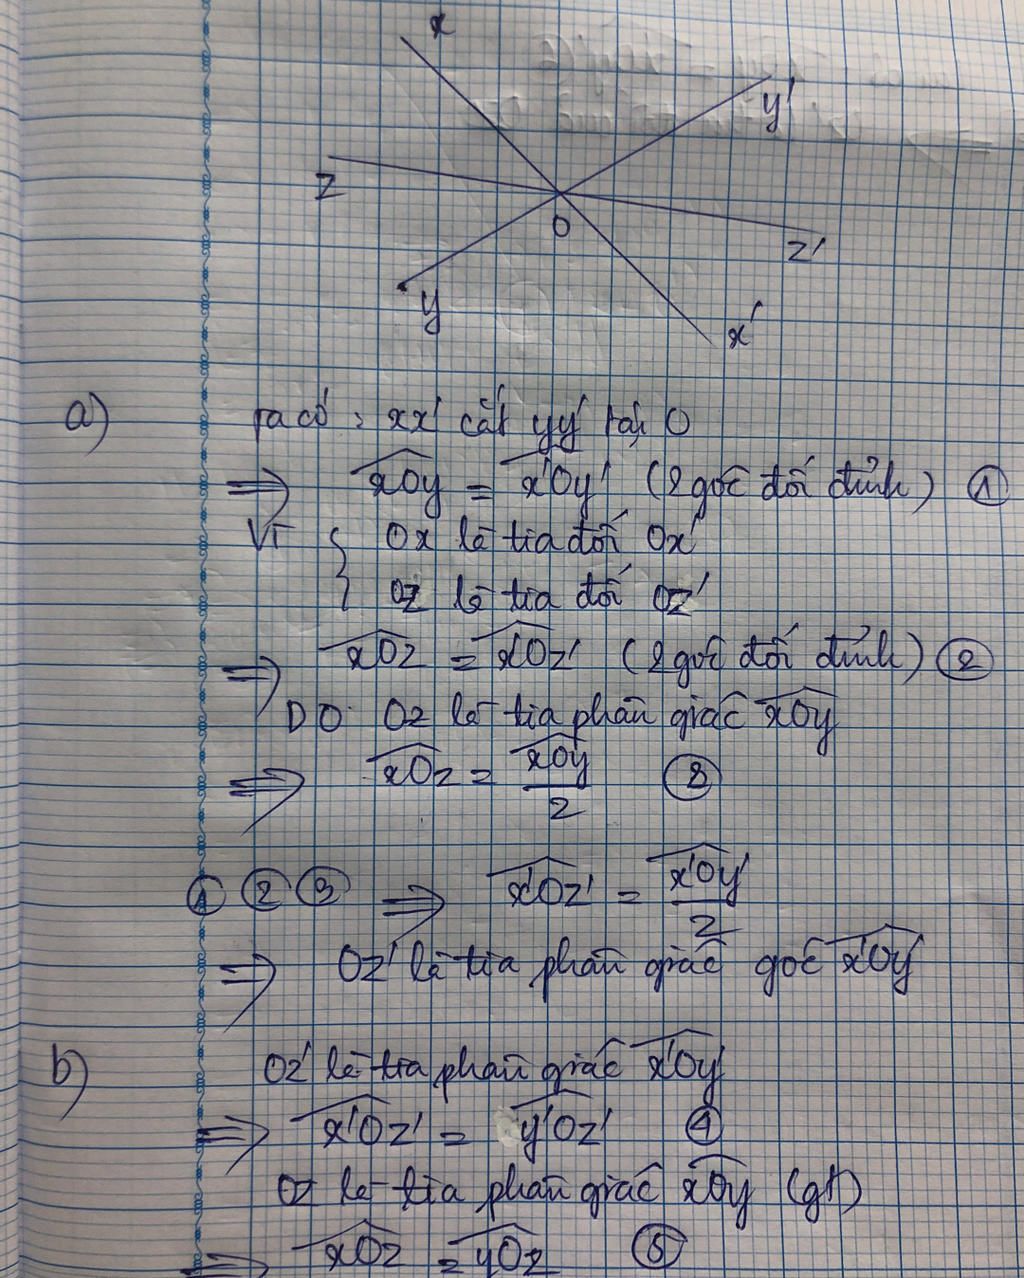 x
y'
z
O
z'
y
x'
a) Ta có: xx' cắt yy' tại O
⇒ xOy = x'Oy' (2 góc đối đỉnh) ①
Vì { Ox là tia đối Ox'
Oz là tia đối Oz'
⇒ xOz = x'Oz' (2 góc đối đỉnh) ②
DO Oz là tia phân giác xOy
⇒ xOz = xOy/2 ③
① ② ③ ⇒ x'Oz' = x'Oy'/2
⇒ Oz' là tia phân giác góc x'Oy'
b) Oz' là tia phân giác x'Oy'
⇒ x'Oz' = y'Oz' ④
Oz là tia phân giác xOy (gt)
⇒ xOz = yOz ⑤